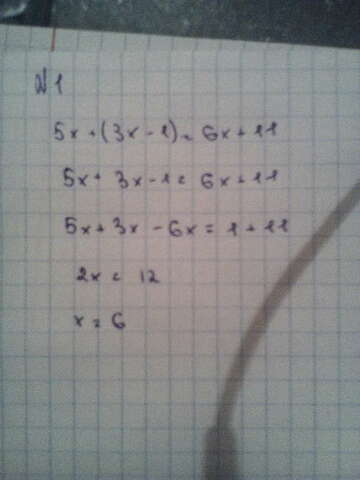 №1
5x + (3x - 1) = 6x + 11
5x + 3x - 1 = 6x + 11
5x + 3x - 6x = 1 + 11
2x = 12
x = 6